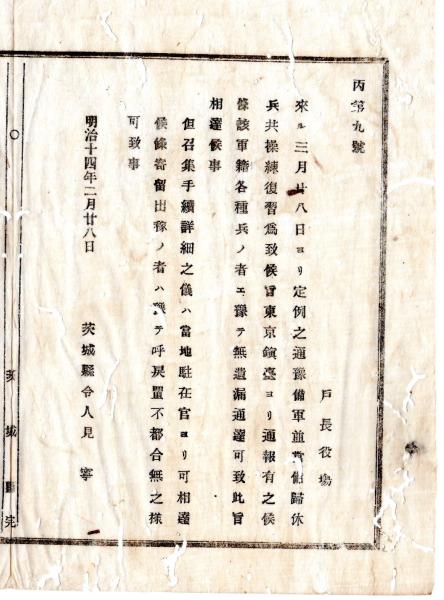 丙第九號
戸長役塲
來ル三月廿八日ヨリ定例之通豫備軍並常備歸休
兵共操練復習爲致候旨東京鎭臺ヨリ通報有之候
條該軍籍各種兵ノ者エ豫テ無遺漏通達可致此旨
相達候事
但召集手續詳細之儀ハ當地駐在官ヨリ可相達
候條寄留出稼ノ者ハ豫テ呼戻置不都合無之樣
可致事
明治十四年二月廿八日
茨城縣令人見寧
茨城縣